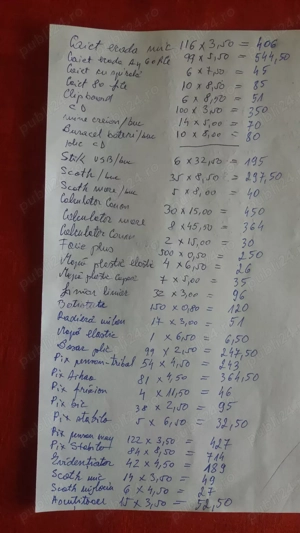 Caiet mic 116 x 3,50 = 406
Caiet A4 60 file 99 x 5,50 = 544,50
Caiet cu spirală 6 x 7,50 = 45
Caiet 80 file 10 x 8,50 = 85
Clipboard 6 x 8,50 = 51
CD 100 x 3,50 = 350
mine creion/buc 14 x 5,00 = 70
Duracel baterii/buc 10 x 8,00 = 80
plic CD
Stik USB/buc 6 x 32,50 = 195
Scoth/buc 35 x 8,50 = 297,50
Scoth mare/buc 5 x 8,00 = 40
Calculator Canon 30 x 15,00 = 450
Calculator mare 8 x 45,50 = 364
Calculator Canon 2 x 15,00 = 30
Folie plus 500 x 0,50 = 250
Mapă plastic elastic 4 x 6,50 = 26
Mapă plastic 7 x 5,00 = 35
liniar 32 x 3,00 = 96
150 x 0,80 = 120
Radieră milan 17 x 3,00 = 51
Mapă elastic 1 x 6,50 = 6,50
plic 99 x 2,50 = 247,50
Pix penson-tribal 54 x 4,50 = 243
Pix 81 x 4,50 = 364,50
Pix frixion 4 x 11,50 = 46
Pix bic 38 x 2,50 = 95
Pix stabilo 5 x 6,50 = 32,50
Pix penson 122 x 3,50 = 427
Pix Stabilo 84 x 8,50 = 714
Evidențiator 42 x 4,50 = 189
Scoth mic 14 x 3,50 = 49
Scoth mijlociu 6 x 4,50 = 27
Ascuțitoare 15 x 3,50 = 52,50